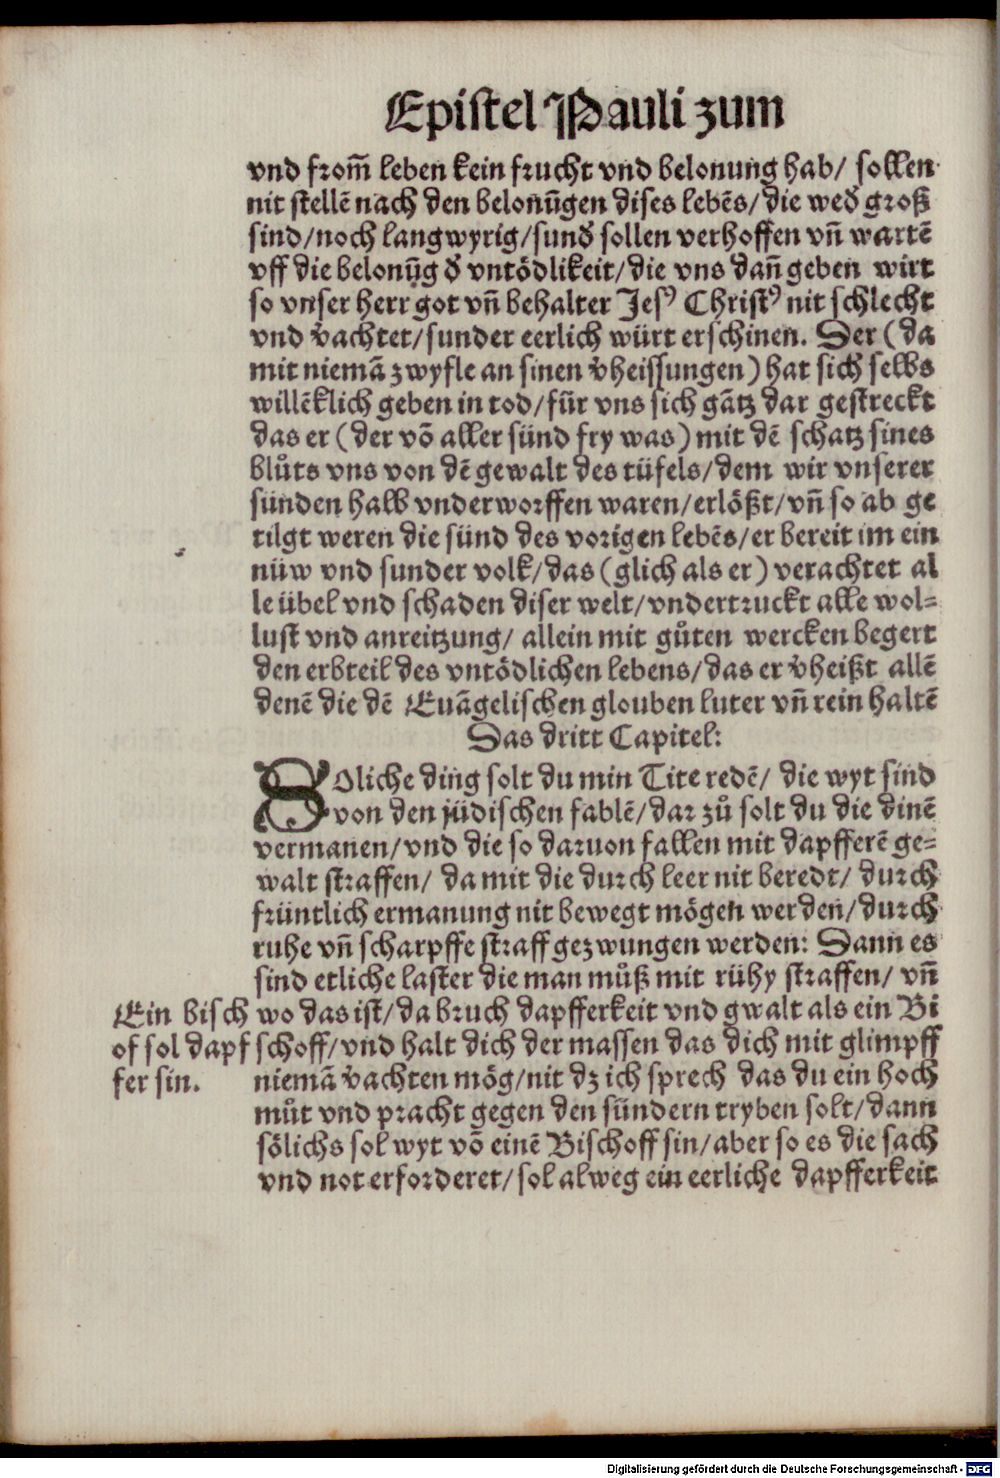 Epistel Pauli zum
vnd from̃ leben kein frucht vnd belonung hab/ sollen
nit stellẽ nach den belonũgen dises lebẽs/die wed̕ groß
sind/noch langwyrig/sund̕ sollen verhoffen vñ wartẽ
vff die belonũg d̕ vntödlikeit/die vns dañ geben wirt
so vnser herr got vñ behalter Jesꝰ Christꝰ nit schlecht
vnd v̕achtet/sunder eerlich würt erschinen. Der (da
mit niemã zwyfle an sinen v̕heissungen) hat sich selbs
willẽklich geben in tod/für vns sich gãtz dar gestreckt
das er (der võ aller sünd fry was) mit dẽ schatz sines
blůts vns von dẽ gewalt des tüfels/dem wir vnserer
sünden halb vnderworffen waren/erlößt/vñ so ab ge
tilgt weren die sünd des vorigen lebẽs/er bereit im ein
nüw vnd sunder volk/das (glich als er) verachtet al
le übel vnd schaden diser welt/vndertruckt alle wol-
lust vnd anreitzung/ allein mit gůten wercken begert
den erbteil des vntödlichen lebens/das er v̕heißt allẽ
denẽ die dẽ Euãgelischen glouben luter vñ rein haltẽ
Das dritt Capitel:
SOliche ding solt du min Tite redẽ/ die wyt sind
von den jüdischen fablẽ/dar zů solt du die dinẽ
vermanen/vnd die so daruon fallen mit dapfferẽ ge-
walt straffen/ da mit die durch leer nit beredt/ durch
früntlich ermanung nit bewegt mögen werden/durch
ruhe vñ scharpffe straff gezwungen werden: Dann es
sind etliche laster die man můß mit rühy straffen/ vñ
wo das ist/da bruch dapfferkeit vnd gwalt als ein Bi
schoff/vnd halt dich der massen das dich mit glimpff
niemã v̕achten mög/nit dz ich sprech das du ein hoch
můt vnd pracht gegen den sündern tryben solt/dann
sölichs sol wyt võ einẽ Bischoff sin/aber so es die sach
vnd not erforderet/sol alweg ein eerliche dapfferkeit
Ein bisch
of sol dapf
fer sin.
Digitalisierung gefördert durch die Deutsche Forschungsgemeinschaft - DFG